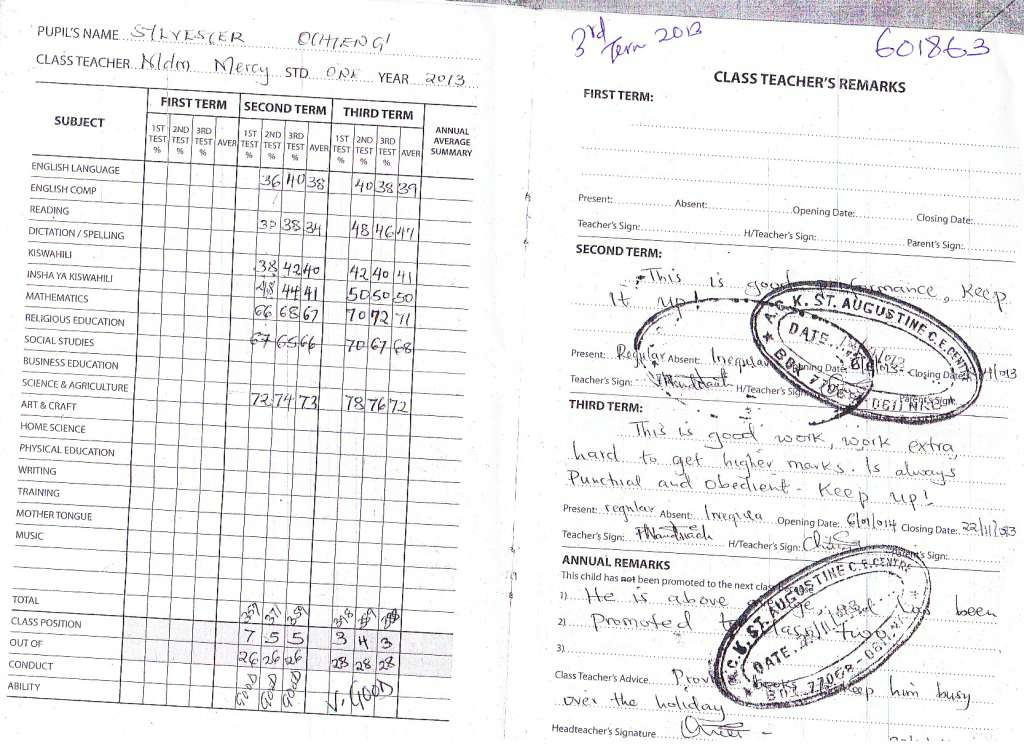 PUPIL'S NAME SYLVESTER OCHIENG'
CLASS TEACHER Mercy STD ONE YEAR 2013
SUBJECT FIRST TERM SECOND TERM THIRD TERM ANNUAL AVERAGE SUMMARY
1ST TEST % 2ND TEST % 3RD TEST % AVER 1ST TEST % 2ND TEST % 3RD TEST % AVER 1ST TEST % 2ND TEST % 3RD TEST % AVER
ENGLISH LANGUAGE 36 40 38 40 38 39
ENGLISH COMP
READING
DICTATION / SPELLING 38 34 48 46 47
KISWAHILI
INSHA YA KISWAHILI 38 42 40 42 40 41
MATHEMATICS 44 41 50 50 50
RELIGIOUS EDUCATION 66 68 67 70 72 71
SOCIAL STUDIES 67 65 66 70 67 68
BUSINESS EDUCATION
SCIENCE & AGRICULTURE
ART & CRAFT 72 74 73 78 76 72
HOME SCIENCE
PHYSICAL EDUCATION
WRITING
TRAINING
MOTHER TONGUE
MUSIC
TOTAL
CLASS POSITION 7 5 5 3 4 3
OUT OF 26 26 26 28 28 28
CONDUCT GOOD GOOD GOOD V. GOOD
ABILITY
3rd Term 2013
601863
CLASS TEACHER'S REMARKS
FIRST TERM:
Present: Absent: Opening Date: Closing Date:
Teacher's Sign: H/Teacher's Sign: Parent's Sign:
SECOND TERM:
This is good performance, Keep
It up!
Present: Regular Absent: Irregular Opening Date: Closing Date:
Teacher's Sign: H/Teacher's Sign: Parent's Sign:
A.C.K. ST. AUGUSTINE C.E. CENTRE
DATE
BOX 77068-0611 NRB
THIRD TERM:
This is good work, work extra
hard to get higher marks. Is always
Punctual and obedient - Keep up!
Present: regular Absent: Irregula Opening Date: 6/01/014 Closing Date: 22/11/013
Teacher's Sign: H/Teacher's Sign: Parent's Sign:
ANNUAL REMARKS
This child has not been promoted to the next class because
1) He is above and has been
2) Promoted to class two
3)
A.C.K. ST. AUGUSTINE C.E. CENTRE
DATE
BOX 77068-0611
Class Teacher's Advice Provide books keep him busy
over the holiday
Headteacher's Signature